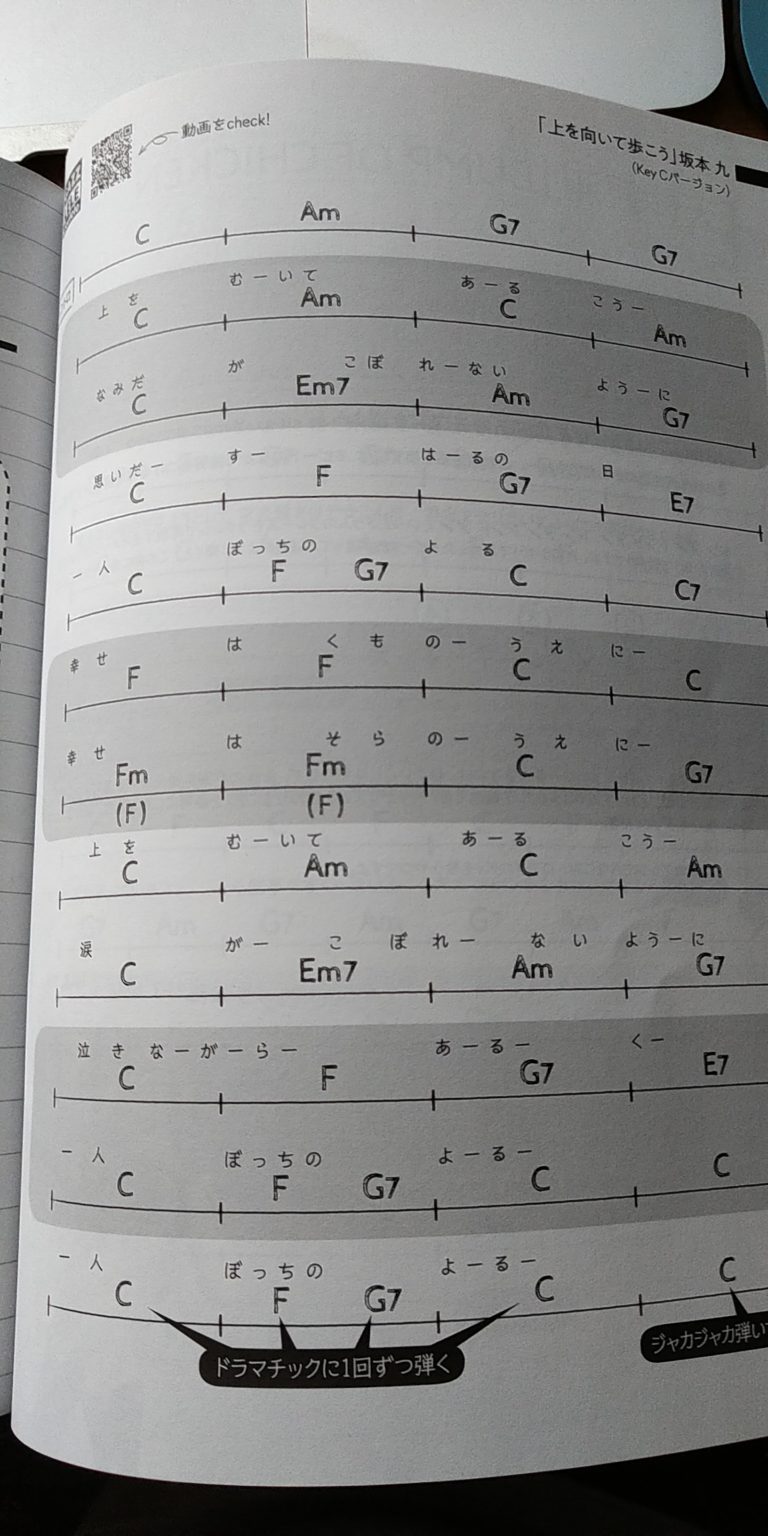 動画をcheck!
「上を向いて歩こう」坂本 九
(Key Cバージョン)
C Am G7 G7
上 を むーいて あーる こうー
C Am C Am
なみだ が こぼ れーない ようーに
C Em7 Am G7
思いだー すー はーるの 日
C F G7 E7
一人 ぼっちの よ る
C F G7 C C7
幸せ は くも のー うえ にー
F F C C
幸せ は そら のー うえ にー
Fm Fm C G7
(F) (F)
上 を むーいて あーる こうー
C Am C Am
涙 がー こ ぼ れー な い ようーに
C Em7 Am G7
泣 き なーがーらー あーるー くー
C F G7 E7
一人 ぼっちの よーるー
C F G7 C C
一人 ぼっちの よーるー
C F G7 C C
ドラマチックに1回ずつ弾く
ジャカジャカ弾い